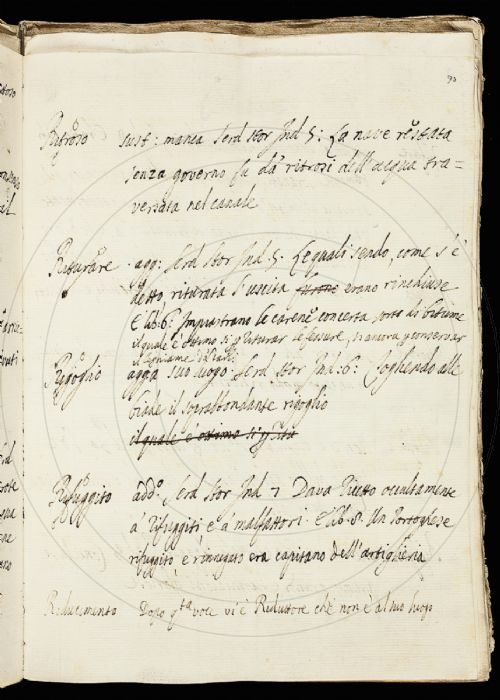 90
Ritroso sust: manca Serd Stor Ind 5: La nave restata
senza governo fu da' ritrosi dell'acqua tra=
versata nel canale
Riturare agg: Serd Stor Ind. 5. Le quali sendo, come s'è
detto, riturata l'uscita furono erano rinchiuse
E lib. 6. Impiastrano le carene con certa sorte di bitume
il quale è ottimo sì p riturar le fessure, sì ancora p conservar
il legname
Rigoglio agga suo luogo Serd Stor Ind: 6: Togliendo alle
biade il soprabbondante rigoglio
il quale è ottimo sì p ritu
Rifuggito add. Serd Stor Ind 7 Dava ricetto occultamente
a' rifuggiti e a malfattori. E lib. 8. Un Portoghese
rifuggito e rinnegato era capitano dell'artiglieria
Riducimento Dopo qta voce vi è Riduttore che non è al suo luogo